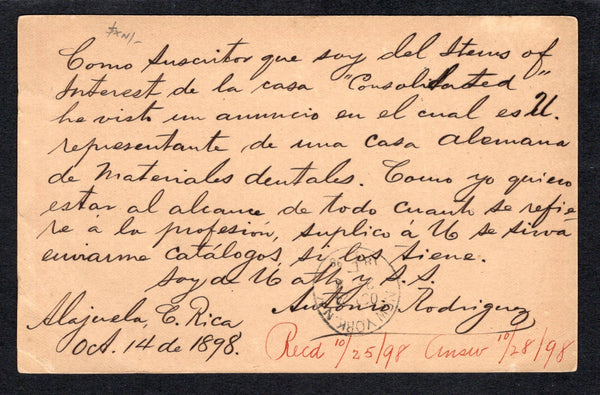 Como suscritor que soy del Items of
Interest de la casa "Consolidated"
he visto un anuncio en el cual es U.
representante de una casa alemana
de materiales dentales. Como yo quiero
estar al alcance de todo cuanto se refie-
re á la profesión, suplico a U se sirva
enviarme catálogos, si los tiene.
Soy de U atto y S.S.
Antonio Rodriguez
Alajuela, C. Rica
Oct. 14 de 1898.
Recd 10/25/98 Answ 10/28/98